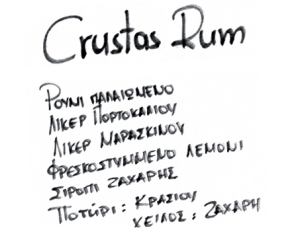 Crustas Rum
ΡΟΥΜΙ ΠΑΛΑΙΩΜΕΝΟ
ΛΙΚΕΡ ΠΟΡΤΟΚΑΛΙΟΥ
ΛΙΚΕΡ ΜΑΡΑΣΚΙΝΟΥ
ΦΡΕΣΚΟΣΤΥΜΜΕΝΟ ΛΕΜΟΝΙ
ΣΙΡΟΠΙ ΖΑΧΑΡΗΣ
ΠΟΤΗΡΙ: ΚΡΑΣΙΟΥ
ΧΕΙΛΟΣ: ΖΑΧΑΡΗ